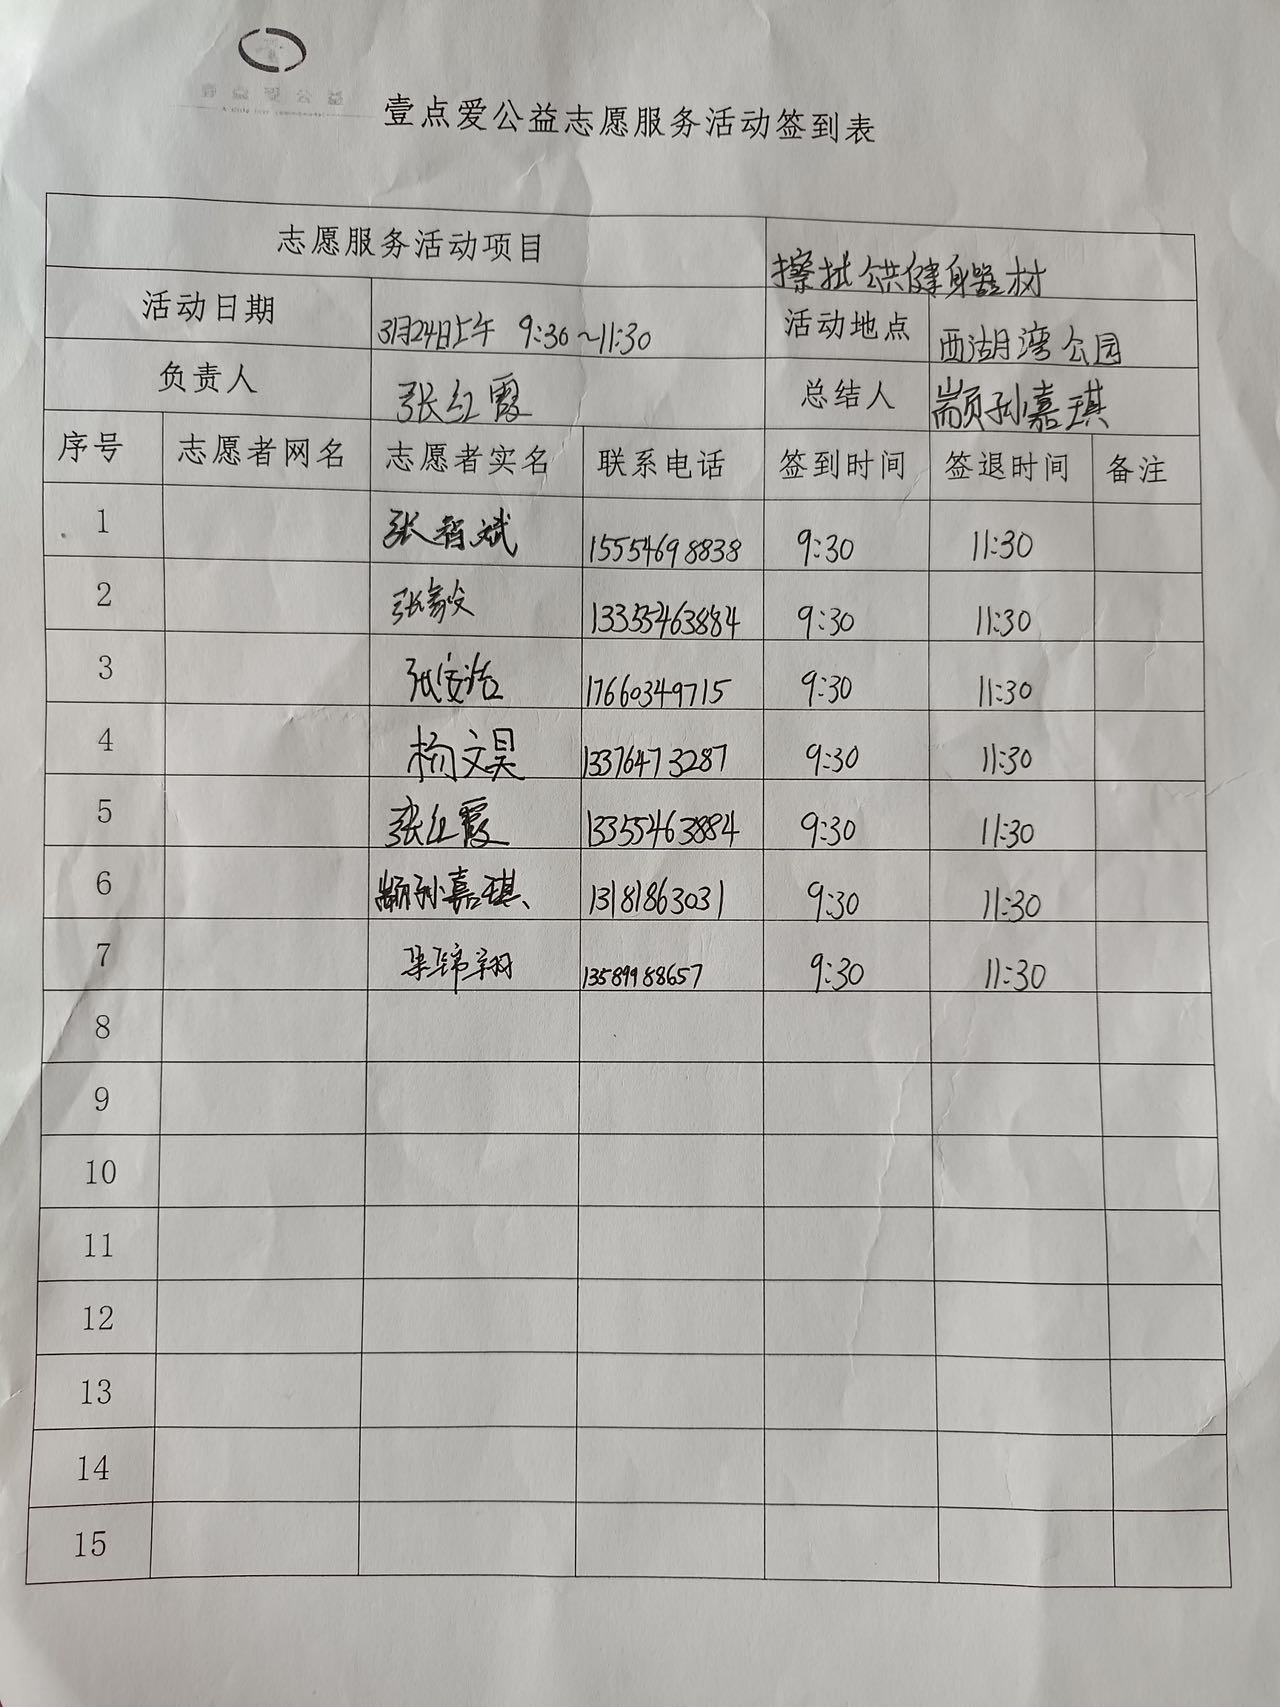 壹点爱公益
壹点爱公益志愿服务活动签到表
志愿服务活动项目 擦拭公共健身器材
活动日期 3月24日上午 9:30~11:30 活动地点 西湖湾公园
负责人 张红霞 总结人 颛孙嘉琪
序号 志愿者网名 志愿者实名 联系电话 签到时间 签退时间 备注
1 张智斌 15554698838 9:30 11:30
2 张 13355463884 9:30 11:30
3 张 17660349715 9:30 11:30
4 杨文昊 13376473287 9:30 11:30
5 张红霞 13355463884 9:30 11:30
6 颛孙嘉琪、 13181863031 9:30 11:30
7 锦翔 13589988657 9:30 11:30
8
9
10
11
12
13
14
15